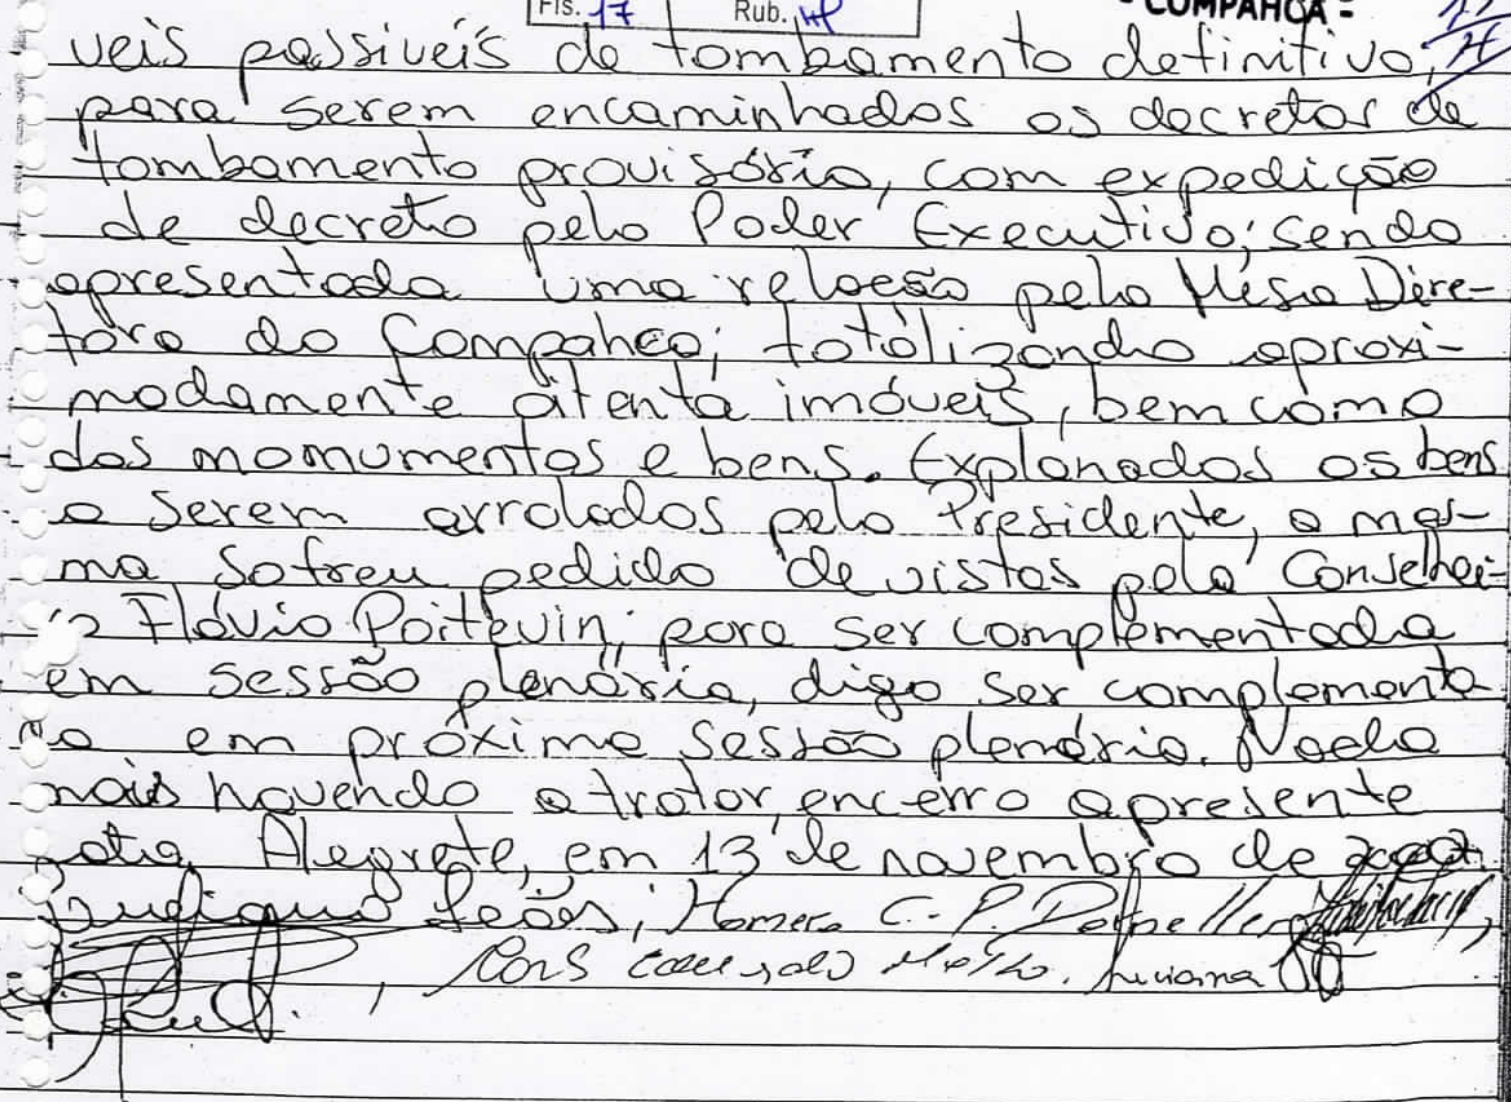 Fls. 17 Rub.
- COMPAHCA -
veis passiveís de tombamento definitivo,
para serem encaminhados os decretos de
tombamento provisório, com expedição
de decreto pelo Poder Executivo; sendo
apresentada uma relação pela Mesa Dire-
tora do Compahca; totalizando aproxi-
madamente oitenta imóveis, bem como
dos monumentos e bens. Explanados os bens
a serem arrolados pelo Presidente, a mes-
ma sofreu pedido de vistas pelo Conselhei-
ro Flávio Poitevin, para ser complementada
em sessão plenária, digo ser complementa
da em próxima sessão plenária. Nada
mais havendo a tratar, encerro a presente
ata. Alegrete, em 13 de novembro de
Leães, Homero C. P. Dornelles
Luciana